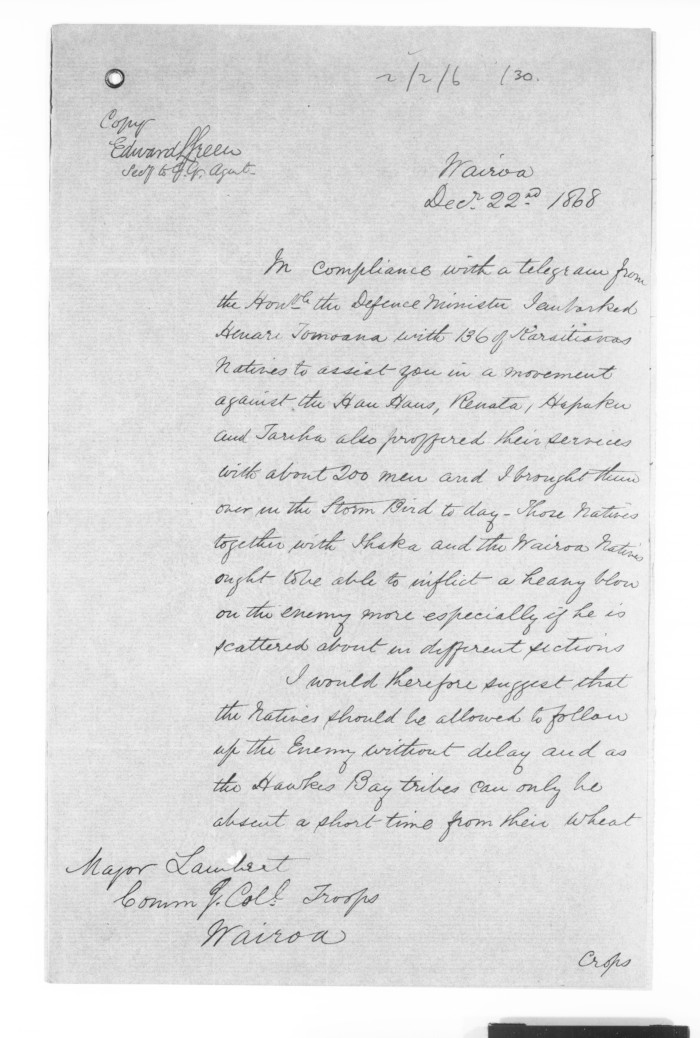 2/2/6 /30.
Copy
Edward L Green
Secy to G. G. Agent
Wairoa
Decr. 22nd 1868
In compliance with a telegram from
the Honble the Defence Minister I embarked
Henare Tomoana with 136 of Karaitianas
Natives to assist you in a movement
against the Hau Haus, Renata, Hapuku
and Tareha also proffered their services
with about 200 men and I brought them
over in the Storm Bird to day - Those Natives
together with Ihaka and the Wairoa Natives
ought to be able to inflict a heavy blow
on the enemy more especially if he is
scattered about in different sections
I would therefore suggest that
the Natives should be allowed to follow
up the Enemy without delay and as
the Hawkes Bay tribes can only be
absent a short time from their wheat
Major Lambert
Comm g. Coll. Troops
Wairoa
Crops